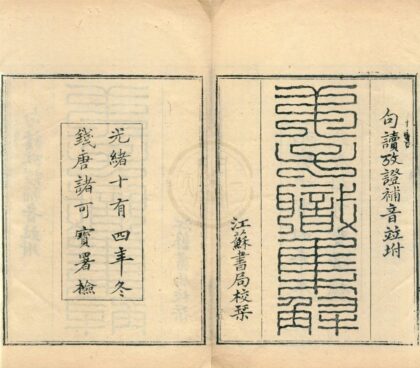 句讀攷證補音竝坿
弟子職集解
江蘇書局校栞
光緒十有四年冬
錢唐諸可寶署檢